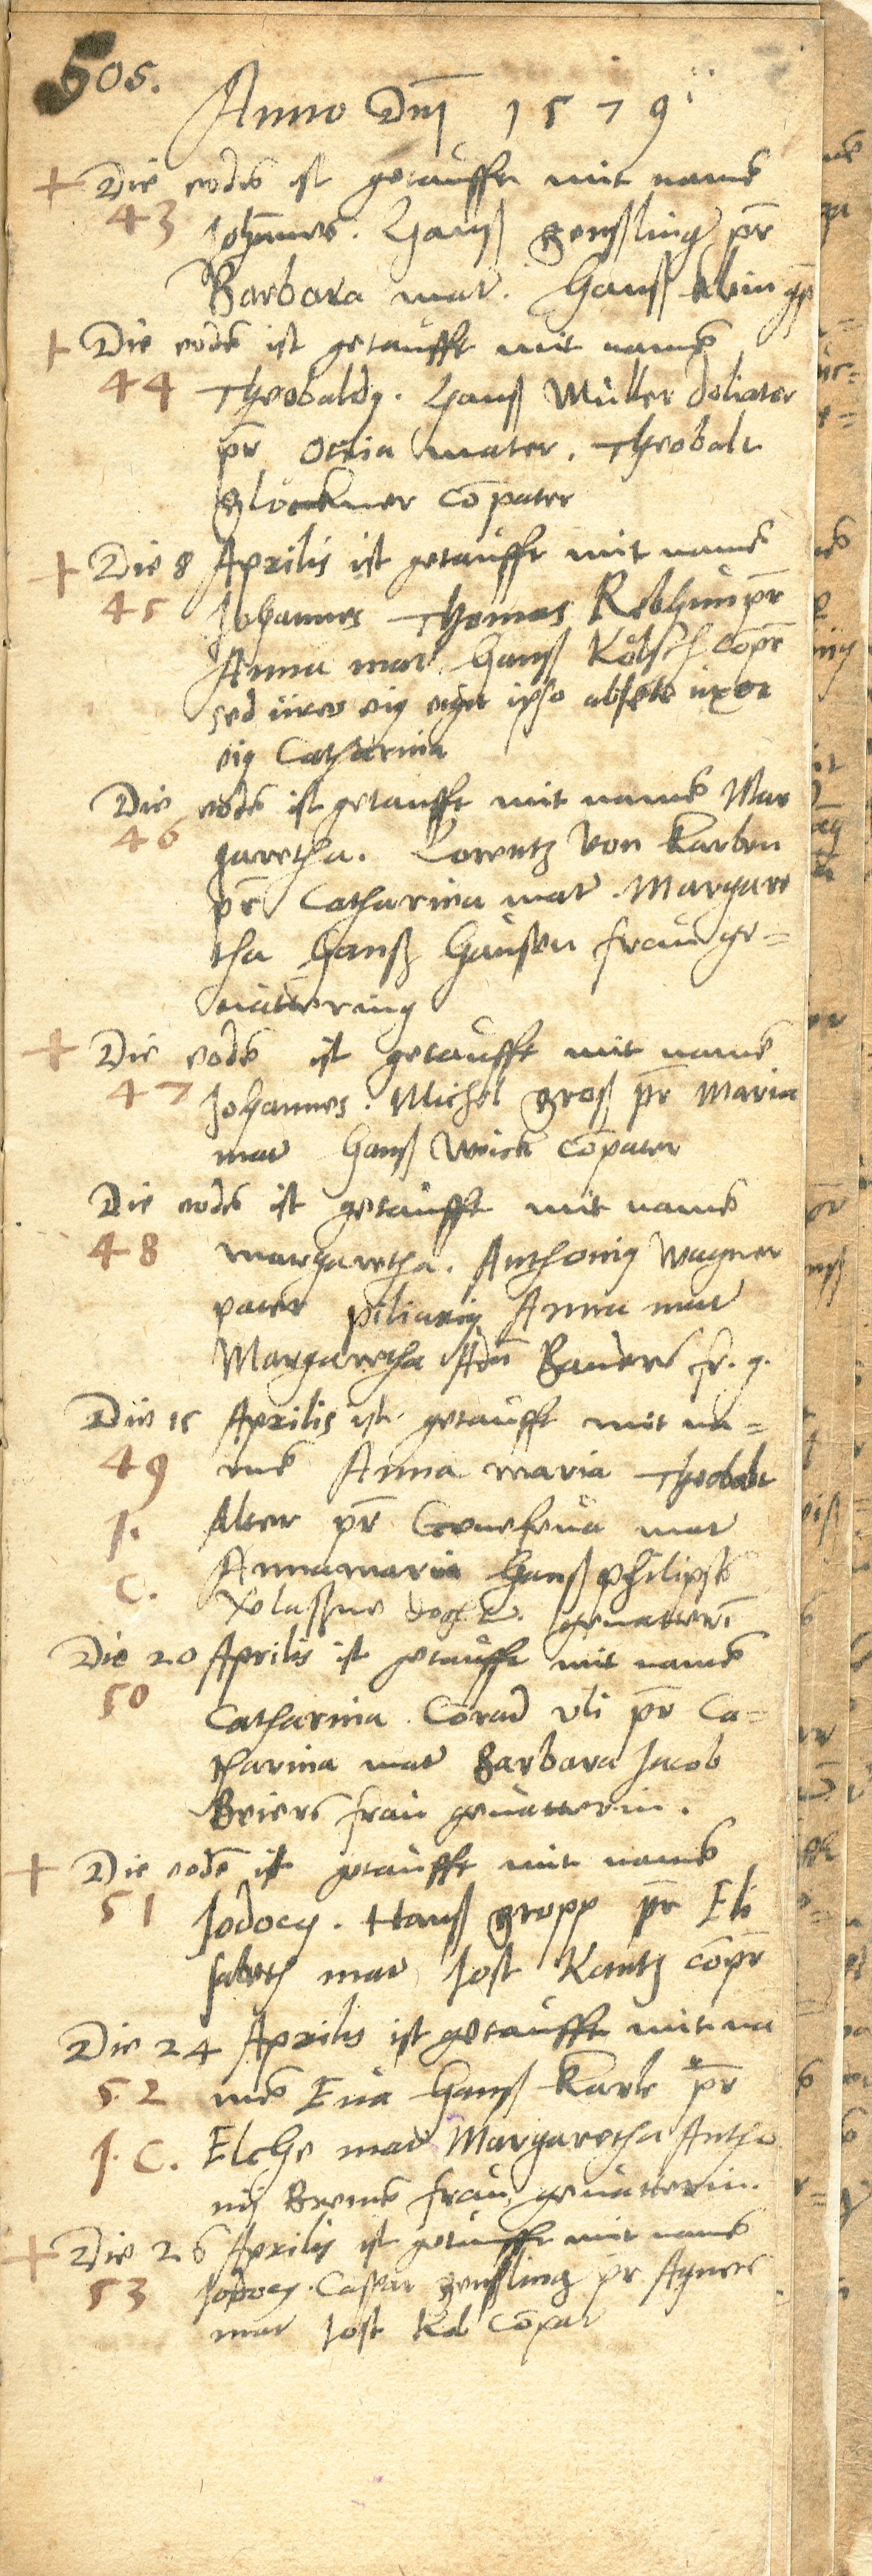 505.
Anno Dnī 1579
+ Die eodē ist getaufft mit namē
43 Johannes. Hanß genßling pr̄
Barbara mat. Hanß klein
+ Die eodē ist getaufft mit namē
44 Theobaldy. Hanß Müller doliator
pr̄ Ottilia mater. Theobalt
glöckner cōpater
+ Die 8 Aprilis ist getaufft mit namē
45 Johannes Thomas Rebhun pr̄
Anna mat Hanß Kölsch cōpr̄
sed eig ipso absēte uxor
eig Catharina
Die eodē ist getaufft mit namē Mar
46 garetha. Lorentz von Karben
pr̄ Catharina mat. Margare
tha Hanß Hausen frau ge=
uatterin
+ Die eodē ist getaufft mit namē
47 Johannes. Michel groß pr̄ Maria
mat Hanß Weick cōpater
Die eodē ist getaufft mit namē
48 margaretha. Anthonig Wagner
pater Anna mat
Margaretha Adā Bauers fr. g.
Die 15 Aprilis ist getaufft mit na=
49 mē Anna maria Theobalt
J. Alter pr̄ Genefeua mat
C. Annamaria Hanß philipß
gevatterī
Die 20 Aprilis ist getaufft mit namē
50 Catharina. Corad vli pr̄ Ca=
tharina mat Barbara Jacob
Beiers frau geuatterin.
+ Die eodē ist getaufft mit namē
51 Jodocy. Hanß gropp pr̄ Eli
sabeth mat Jost Kantz cōpr̄
Die 24 Aprilis ist getaufft mit na
52 mē Eua Hanß Karle pr̄
J. C. Elche mat Margaretha Antho
nij Bremē frau geuatterin.
+ Die 26 Aprilis ist getaufft mit namē
53 Jodocy. Caspar genßling pr Agnes
mat Jost Kol cōpat